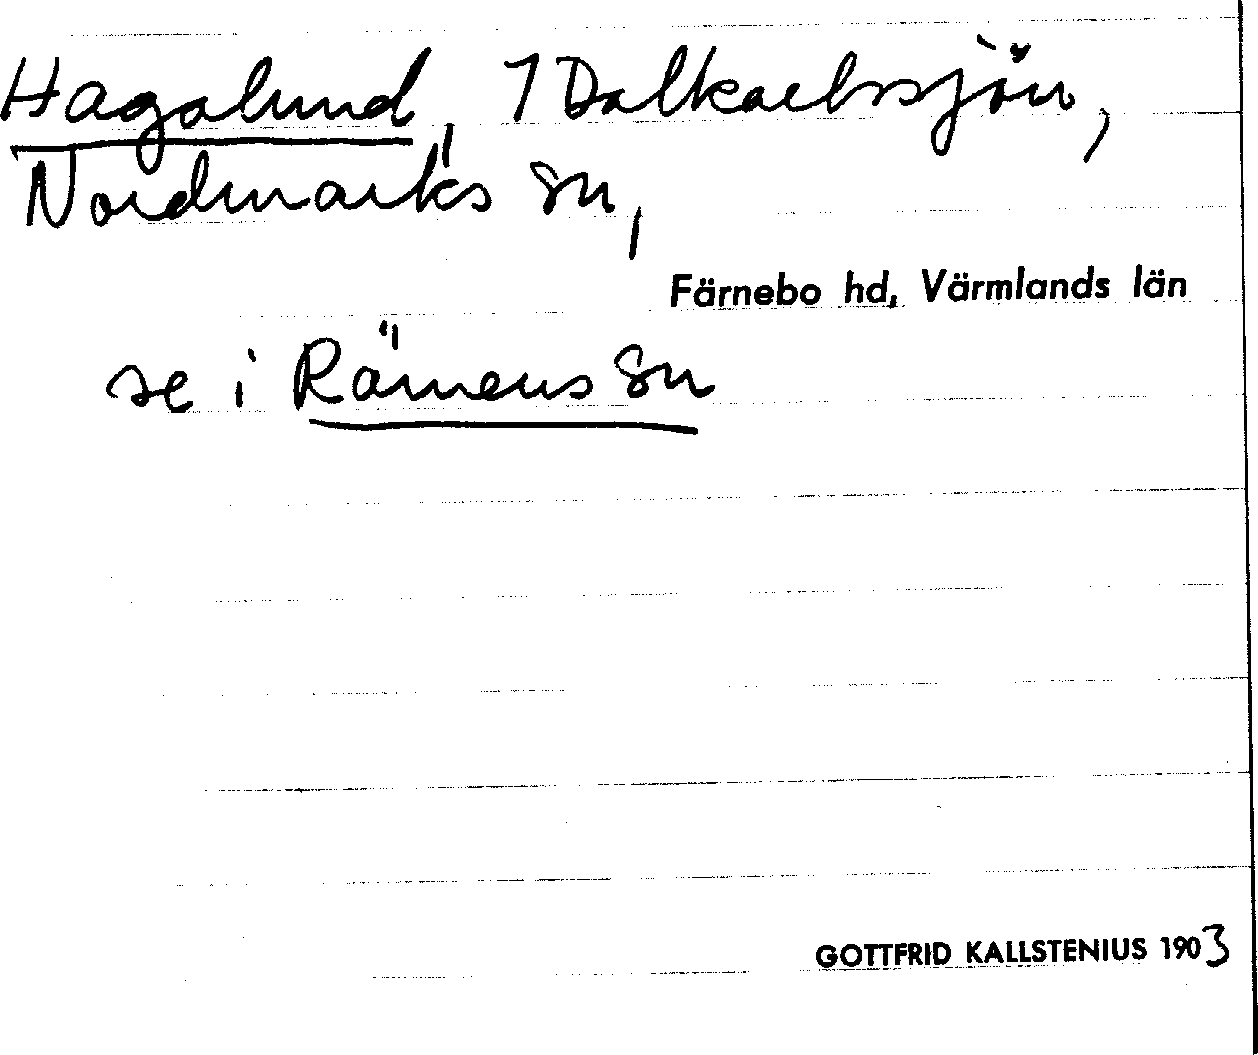 Hagalund, 1 Dalkarlssjön,
Nordmarks sn,
Färnebo hd, Värmlands län
se i Rämens sn
GOTTFRID KALLSTENIUS 1903